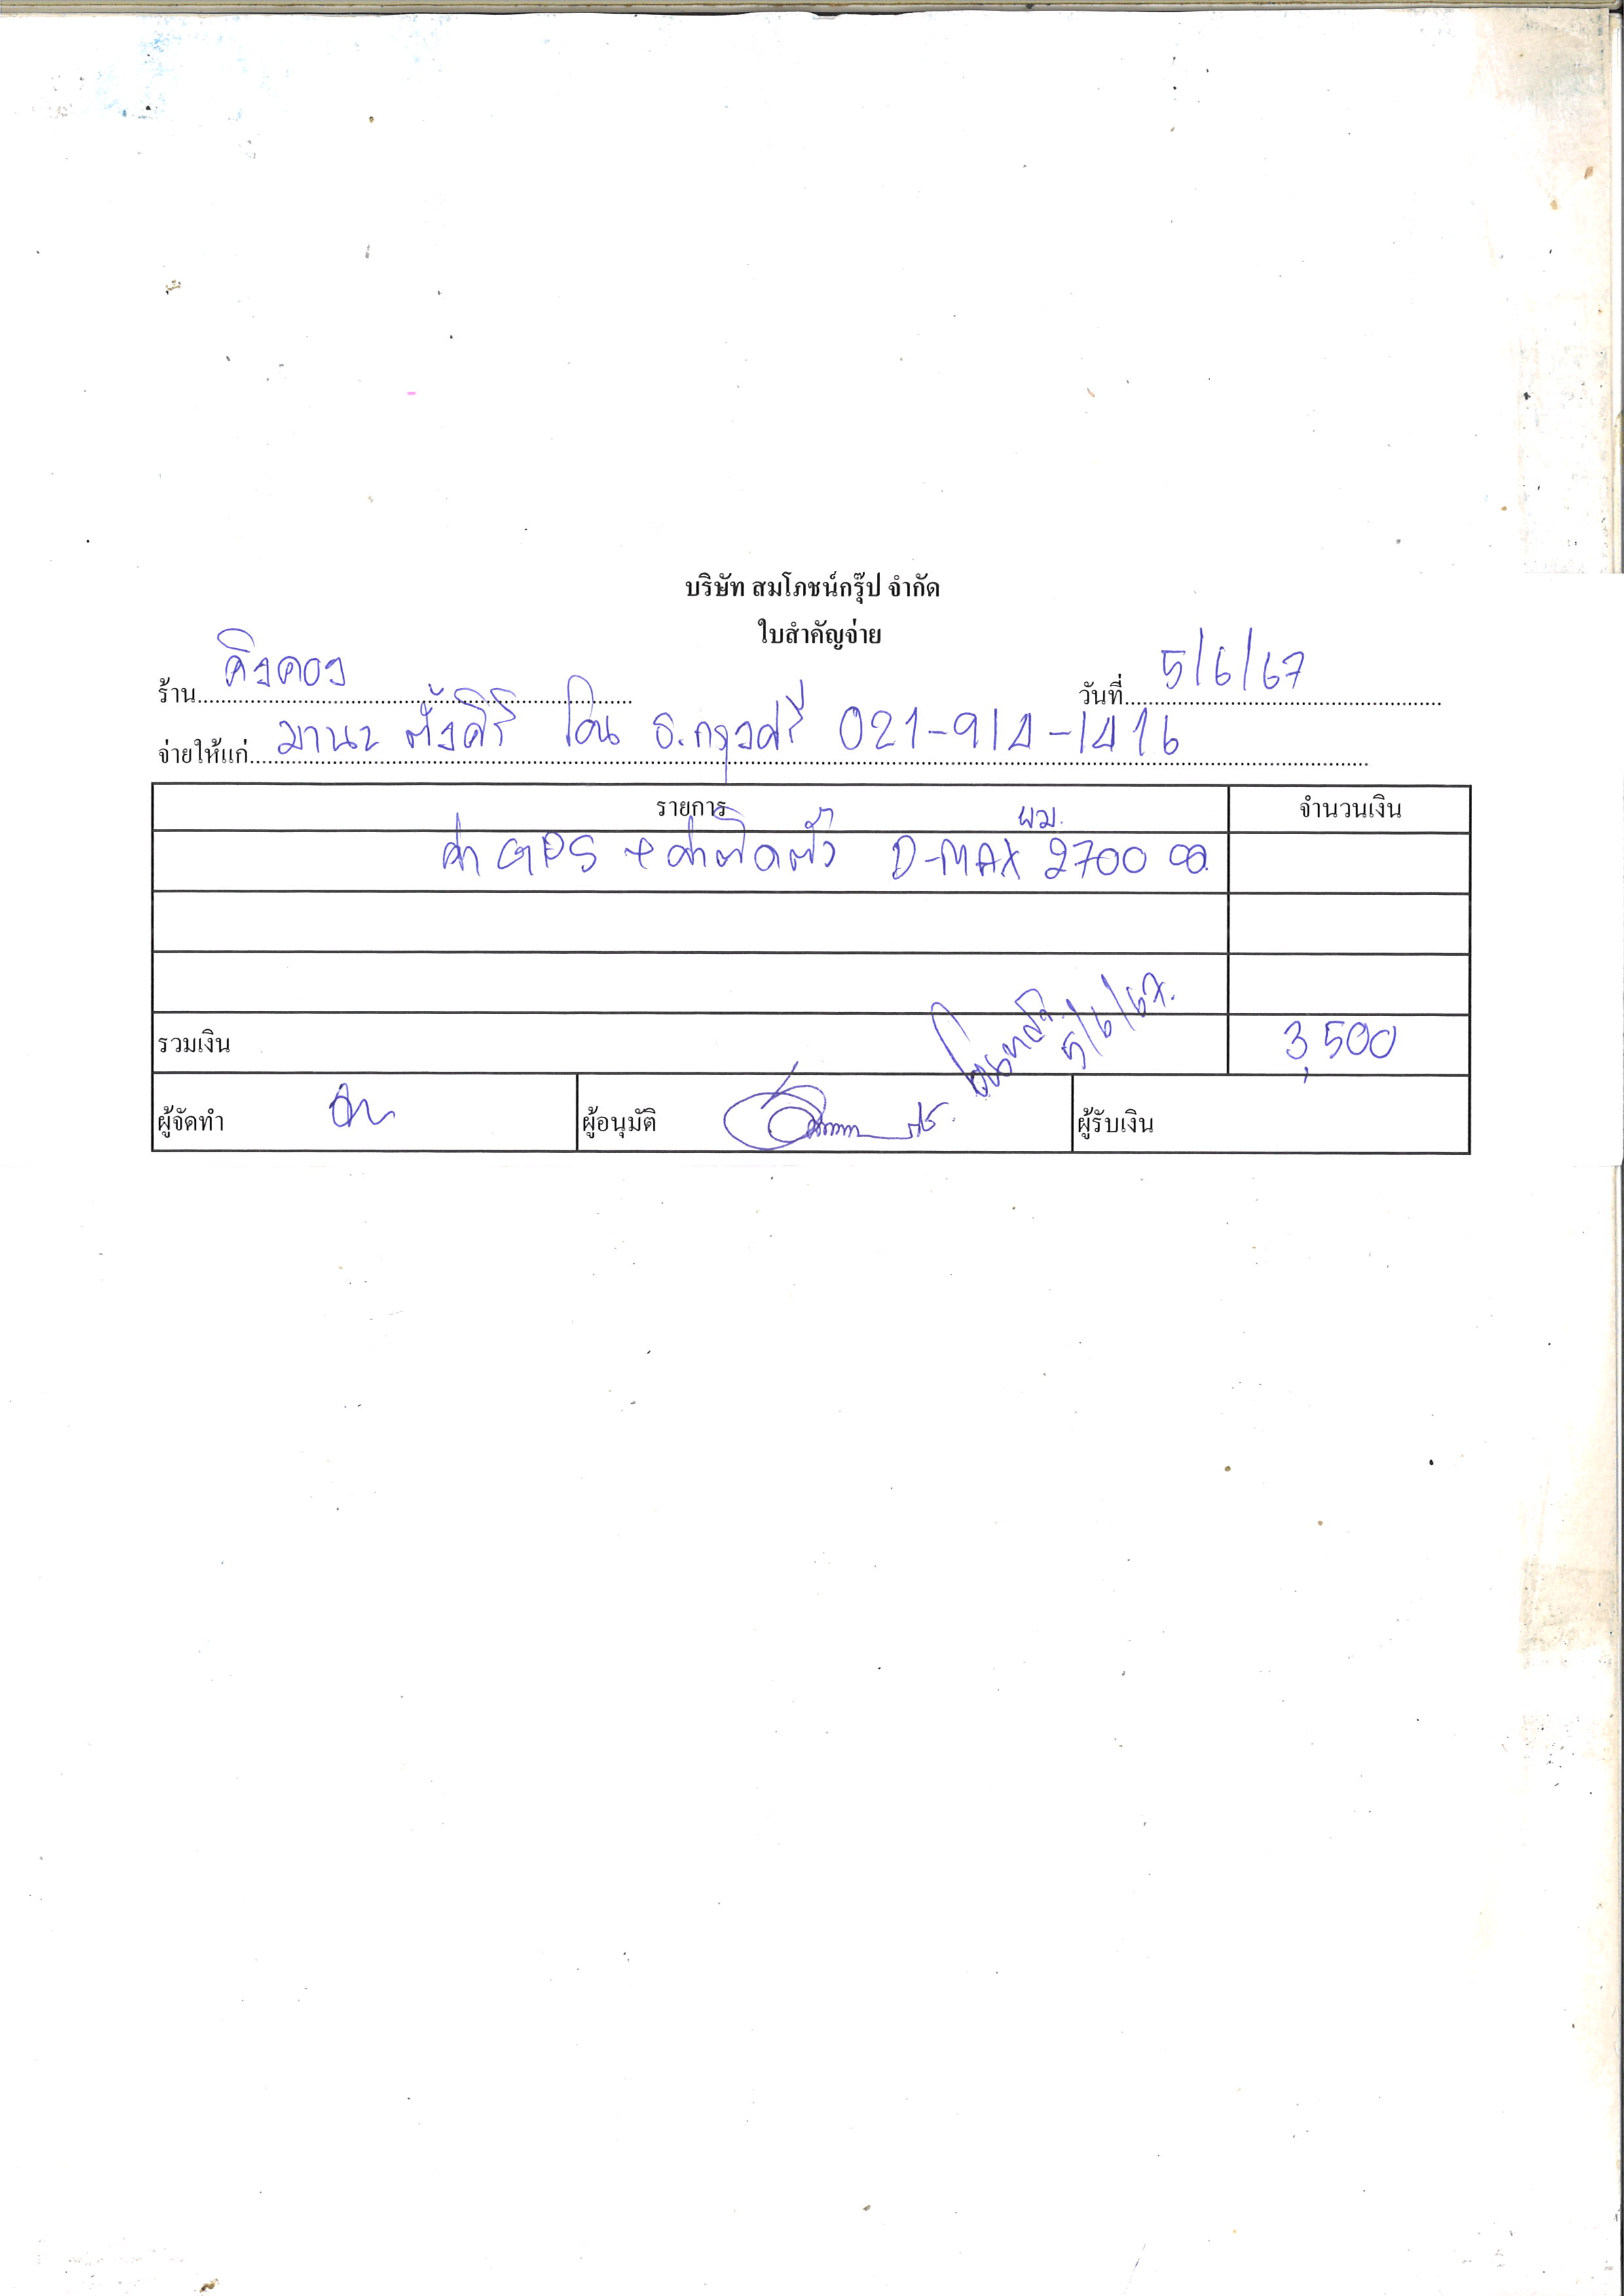 บริษัท สมโภชน์กรุ๊ป จำกัด
ใบสำคัญจ่าย
ร้าน คิงคอง วันที่ 5/6/67
จ่ายให้แก่ มานะ ตั้งศิริ โอน ธ.กรุงศรี 021-914-1416
รายการ จำนวนเงิน
ผม.
ค่า GPS + ค่าติดตั้ง D-MAX 2700
โอนแล้ว
5/6/67.
รวมเงิน 3,500
ผู้จัดทำ ผู้อนุมัติ ผู้รับเงิน